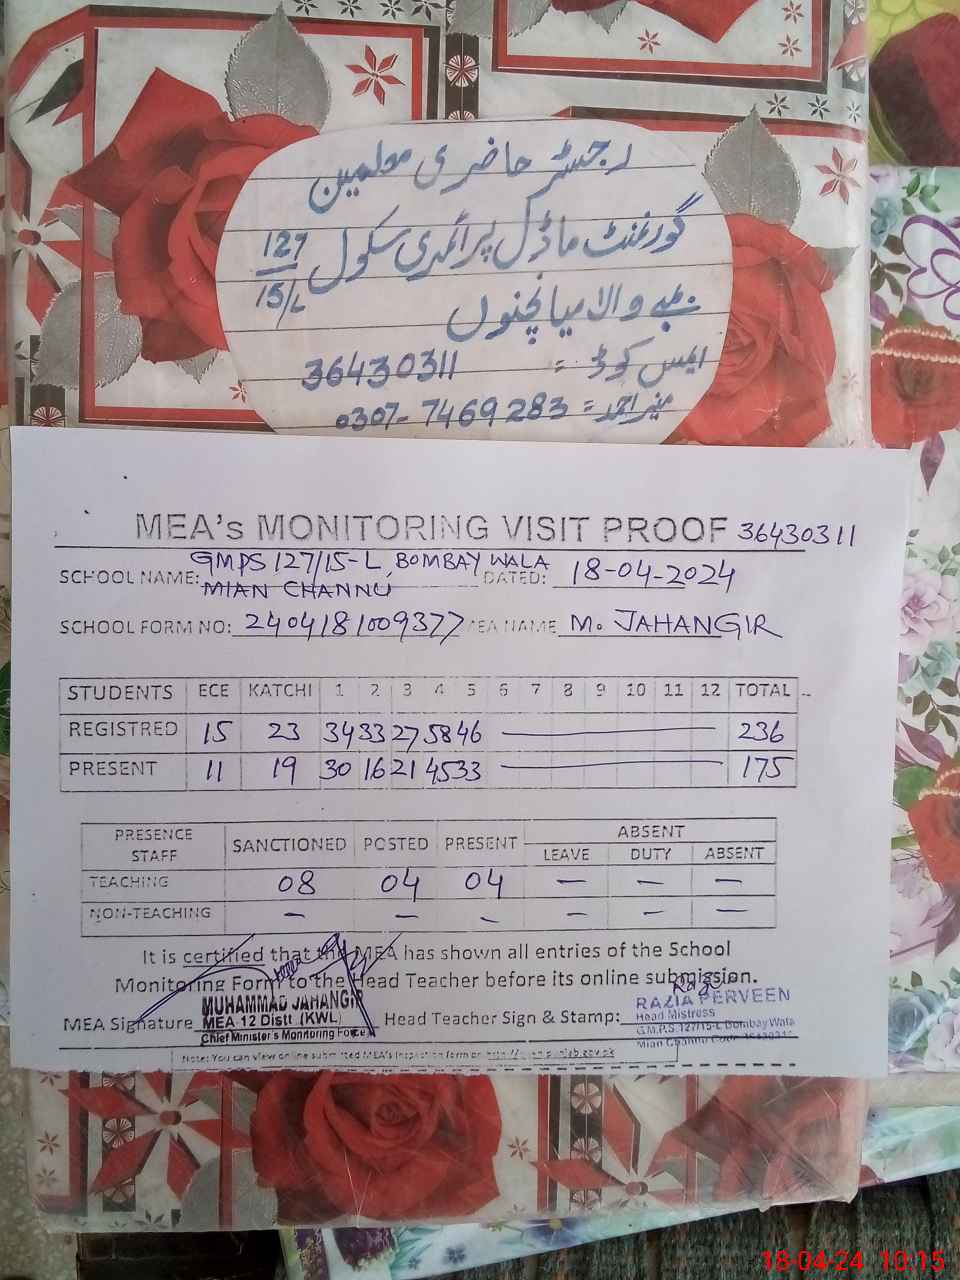 رجسٹر حاضری معلمین
گورنمنٹ ماڈل پرائمری سکول 127/15/L
بمبے والا میاں چنوں
ایمس کوڈ = 36430311
منیر احمد = 0307-7469283
MEA's MONITORING VISIT PROOF 36430311
SCHOOL NAME: GMPS 127/15-L, BOMBAY WALA MIAN CHANNU DATED: 18-04-2024
SCHOOL FORM NO: 2404181009377 MEA NAME M. JAHANGIR
STUDENTS ECE KATCHI 1 2 3 4 5 6 7 8 9 10 11 12 TOTAL
REGISTRED 15 23 34 33 27 58 46 — 236
PRESENT 11 19 30 16 21 45 33 — 175
PRESENCE STAFF SANCTIONED POSTED PRESENT ABSENT
LEAVE DUTY ABSENT
TEACHING 08 04 04 – – –
NON-TEACHING – – – – – –
It is certified that the MEA has shown all entries of the School
Monitoring Form to the Head Teacher before its online submission.
MUHAMMAD JAHANGIR
MEA Signature MEA 12 Distt (KWL)
Chief Minister's Monitoring Force
Head Teacher Sign & Stamp: RAZIA PERVEEN
Head Mistress
G.M.P.S 127/15-L Bombay Wala
Mian Channu Code
Note: You can view online submitted MEA's inspection form on
18-04-24 10:15